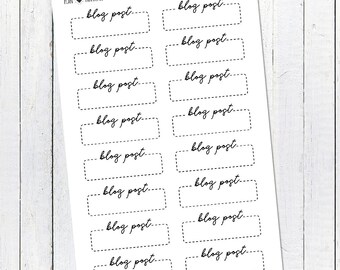 blog post
blog post
blog post
blog post
blog post
blog post
blog post
blog post
blog post
blog post
blog post
blog post
blog post
blog post
blog post
blog post